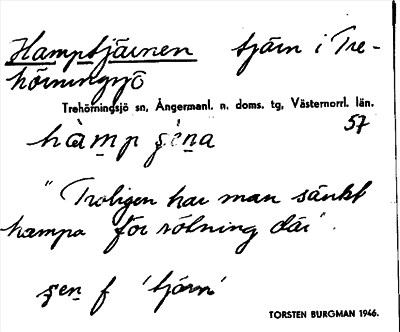 Hamptjärnen tjärn i Tre-
hörningsjö
Trehörningsjö sn, Ångermanl. n. doms. tg, Västernorrl. län.
57
hàmp şèna
"Troligen har man sänkt
hampa för rötning där'.
şen f 'tjärn'
TORSTEN BURGMAN 1946.